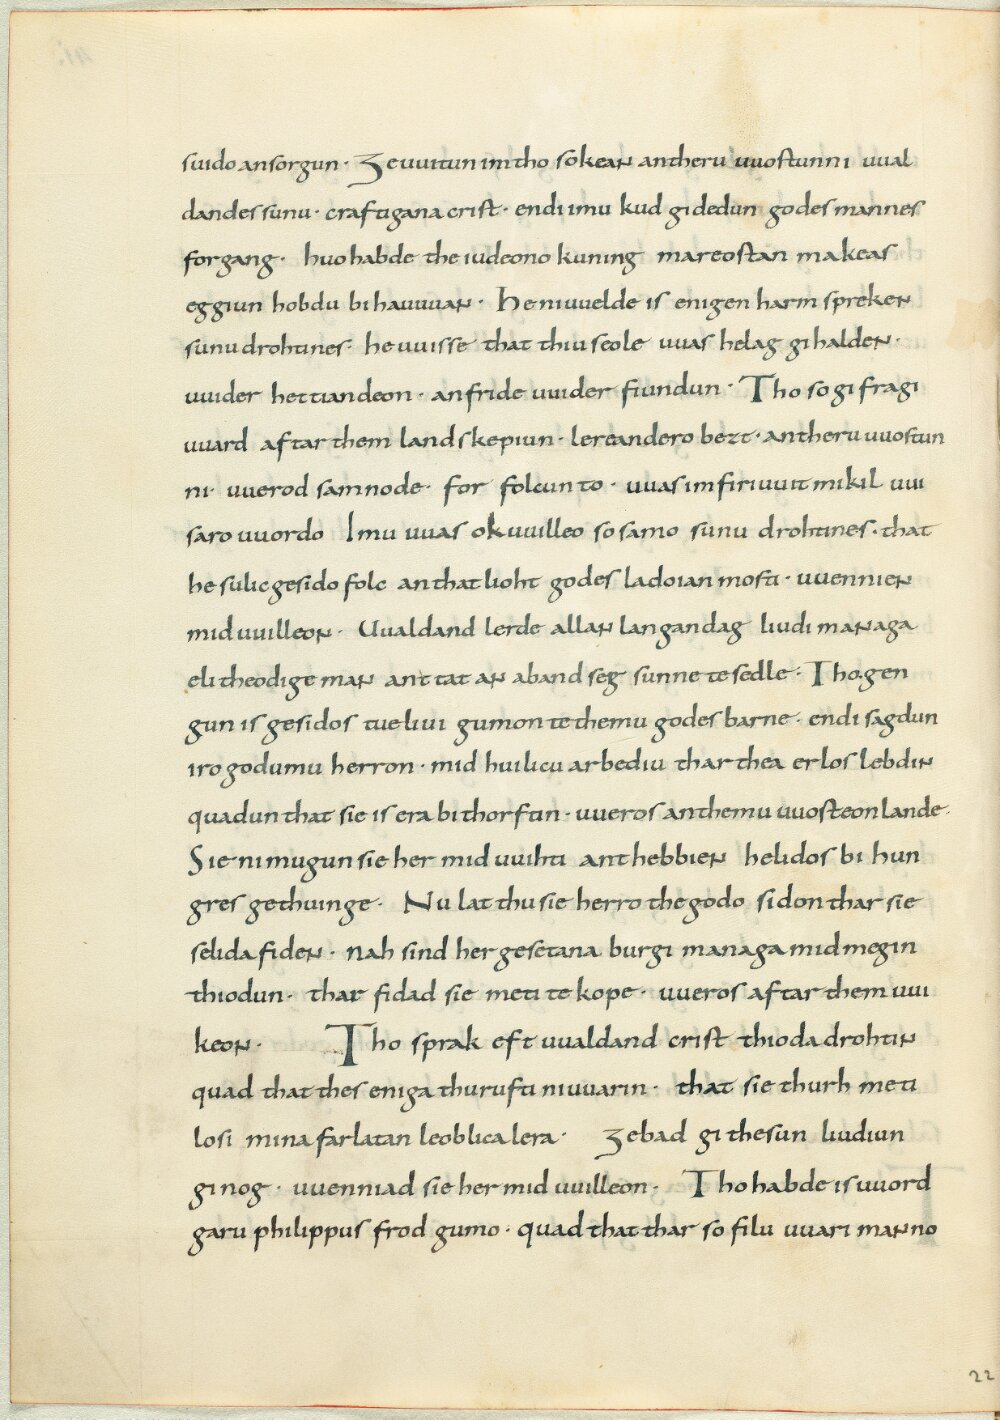 suido an sorgun · Ʒeuuitun im tho sokean an theru uuostunni uual
dandes sunu · craftigana crist · endi imu kud gidedun godes mannes
forgang · huo habde the iudeono kuning mareostan makeas
eggiun hobdu bihauuuan · he ni uuelde is enigen harm spreken
sunu drohtines · he uuisse that thiu seole uuas helag gihalden ·
uuider hettiandeon · an fride uuider fiundun · Tho so gifragi
uuard aftar them landskepiun · lereandero bezt · an theru uuostun
ni · uuerod samnode · for folcun to · uuas im firiuuit mikil uui
saro uuordo Imu uuas ok uuilleo so samo sunu drohtines · that
he sulic gesido folc an that lioht godes ladoian mosti · uuennien
mid uuilleon · Uualdand lerde allan langan dag liudi managa
elitheodige man anttat an aband seg sunne te sedle · Tho gen
gun is gesidos tueliui gumon te themu godes barne · endi sagdun
iro godumu herron · mid huilicu arbediu thar thea erlos lebdin
quadun that sie is era bithorftin · uueros an themu uuosteon lande ·
Sie ni mugun sie her mid uuihti anthebbien helidos bi hun
gres gethuinge · Nu lat thu sie herro the godo sidon thar sie
selida fiden · nah sind her gesetana burgi managa mid megin
thiodun · thar fidad sie meti te kope · uueros aftar them uui
keon · Tho sprak eft uualdand crist thioda drohtin
quad that thes eniga thurufti ni uuarin · that sie thurh meti
losi mina farlatan leoblica lera · Ʒebad gi thesun liudiun
ginog · uuenniad sie her mid uuilleon · Tho habde is uuord
garu philippus frod gumo · quad that thar so filu uuari manno
22